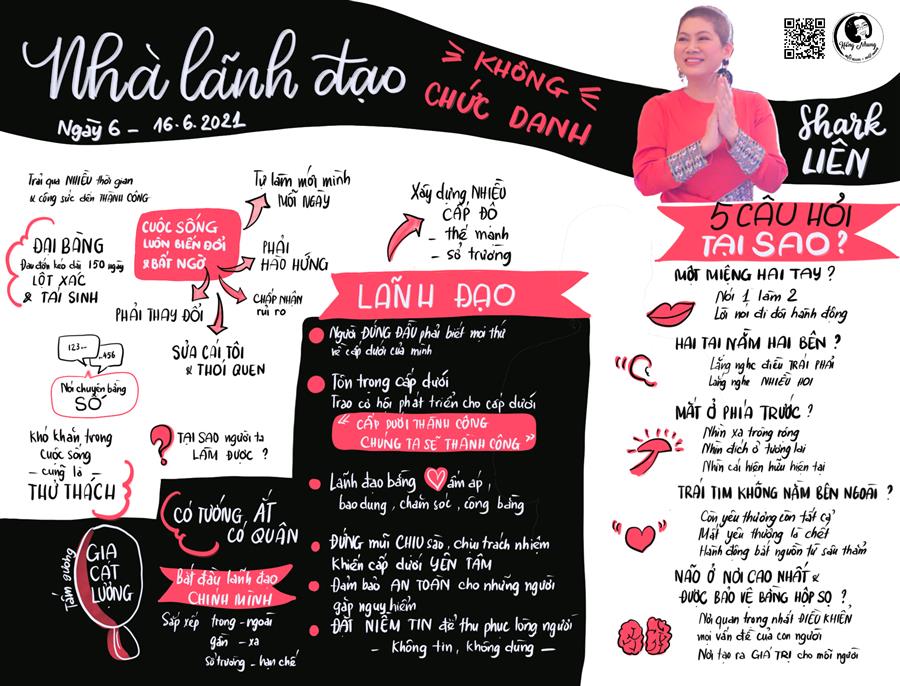 Nhà lãnh đạo
KHÔNG
CHỨC DANH
Ngày 6 - 16.6.2021
Hồng Nhung
Shark
LIÊN
Trải qua NHIỀU thời gian
& công sức đến THÀNH CÔNG
ĐẠI BÀNG
Đau đớn kéo dài 150 ngày
LỘT XÁC
& TÁI SINH
CUỘC SỐNG
LUÔN BIẾN ĐỔI
& BẤT NGỜ
Tự làm mới mình
MỖI NGÀY
PHẢI
HÀO HỨNG
CHẤP NHẬN
rủi ro
SỬA CÁI TÔI
& THÓI QUEN
PHẢI THAY ĐỔI
123...
...456
Nói chuyện bằng
SỐ
Khó khăn trong
cuộc sống
- cũng là -
THỬ THÁCH
? TẠI SAO người ta
LÀM ĐƯỢC ?
Xây dựng NHIỀU
CẤP ĐỘ
- thế mạnh
- sở trường
Tấm gương
GIA
CÁT
LƯỢNG
CÓ TƯỚNG, ẮT
CÓ QUÂN
Bắt đầu lãnh đạo
CHÍNH MÌNH
Sắp xếp trong - ngoài
gần - xa
Sở trường - hạn chế
LÃNH ĐẠO
Người ĐỨNG ĐẦU phải biết mọi thứ
về cấp dưới của mình
Tôn trọng cấp dưới
Trao cơ hội phát triển cho cấp dưới
"CẤP DƯỚI THÀNH CÔNG
CHÚNG TA SẼ THÀNH CÔNG"
Lãnh đạo bằng ấm áp,
bao dung, chăm sóc, công bằng
ĐỨNG mũi CHỊU sào, chịu trách nhiệm
Khiến cấp dưới YÊN TÂM
Đảm bảo AN TOÀN cho những người
gặp nguy hiểm
ĐẶT NIỀM TIN để thu phục lòng người
- Không tin, không dùng -
5 CÂU HỎI
TẠI SAO?
MỘT MIỆNG HAI TAY ?
Nói 1 làm 2
Lời nói đi đôi hành động
HAI TAI NẰM HAI BÊN ?
Lắng nghe điều TRÁI PHẢI
Lắng nghe NHIỀU HƠN
MẮT Ở PHÍA TRƯỚC ?
Nhìn xa trông rộng
Nhìn đích ở tương lai
Nhìn cái hiện hữu hiện tại
TRÁI TIM KHÔNG NẰM BÊN NGOÀI ?
Còn yêu thương còn tất cả
Mất yêu thương là chết
Hành động bắt nguồn từ sâu thẳm
NÃO Ở NƠI CAO NHẤT &
ĐƯỢC BẢO VỆ BẰNG HỘP SỌ ?
Nơi quan trọng nhất ĐIỀU KHIỂN
mọi vấn đề của con người
Nơi tạo ra GIÁ TRỊ cho mỗi người